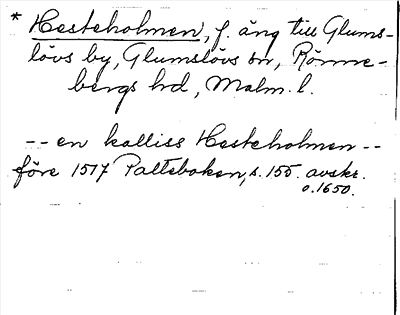 * Hesteholmen, f. äng till Glums-
lövs by, Glumslövs sn, Rönne-
bergs hd, Malm. l.
-- en kalliss Hesteholmen --
före 1517 Palteboken, s. 155. avskr.
o. 1650.